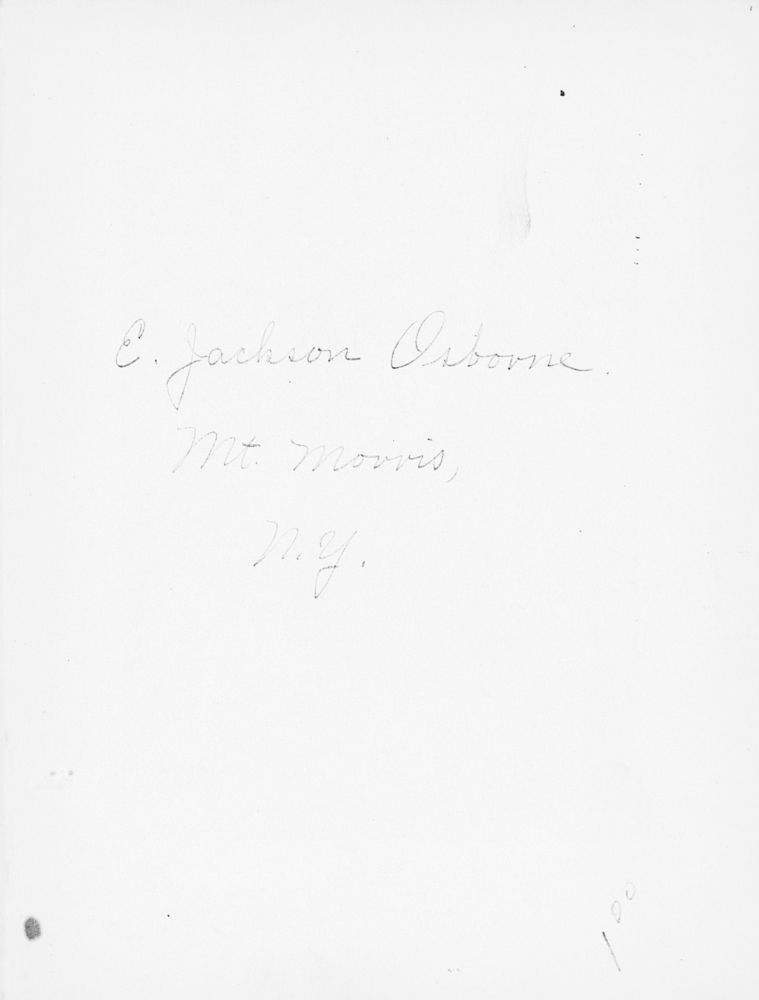 E. Jackson Osborne.
Mt. Morris,
N.Y.
1 00